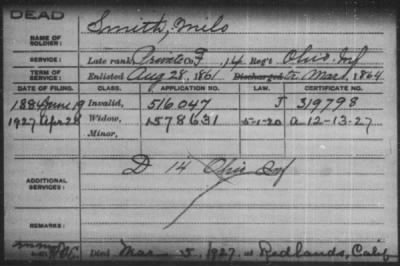 DEAD
NAME OF SOLDIER: Smith, Milo
SERVICE: Late rank, Private Co. F, 14 Reg't Ohio Inf
TERM OF SERVICE: Enlisted Aug 28, 1861 Discharged Mar 1, 1864
DATE OF FILING. CLASS. APPLICATION NO. LAW. CERTIFICATE NO.
1884 June 19 Invalid, 516047 J 319798
1927 Apr 28 Widow, 1578631 5-1-20 a 12-13-27
Minor,
ADDITIONAL SERVICES: D 14 Ohio Inf
REMARKS:
Died Mar 5, 1927, at Redlands, Calif